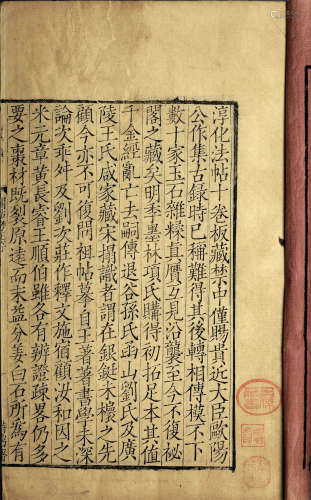 淳化法帖十卷板藏禁中僅賜貴近大臣歐陽
公作集古錄時已稱難得其後轉相傳模不下
數十家玉石雜糅真贗互見沿襲至今不復秘
閣之藏矣明季墨林項氏購得初拓足本其值
千金經亂亡去嗣傳退谷孫氏函山劉氏及廣
陵王氏咸家藏宋搨識者謂在銀鋌未櫌之先
顧今亦不可復問祖帖摹自王著著書學未深
論次乖舛及劉次莊作釋文施宿顧汝和因之
米元章黃長睿王順伯雖各有辨證疎畧仍多
要之棗材既裂原遠而末益分姜白石所寫有